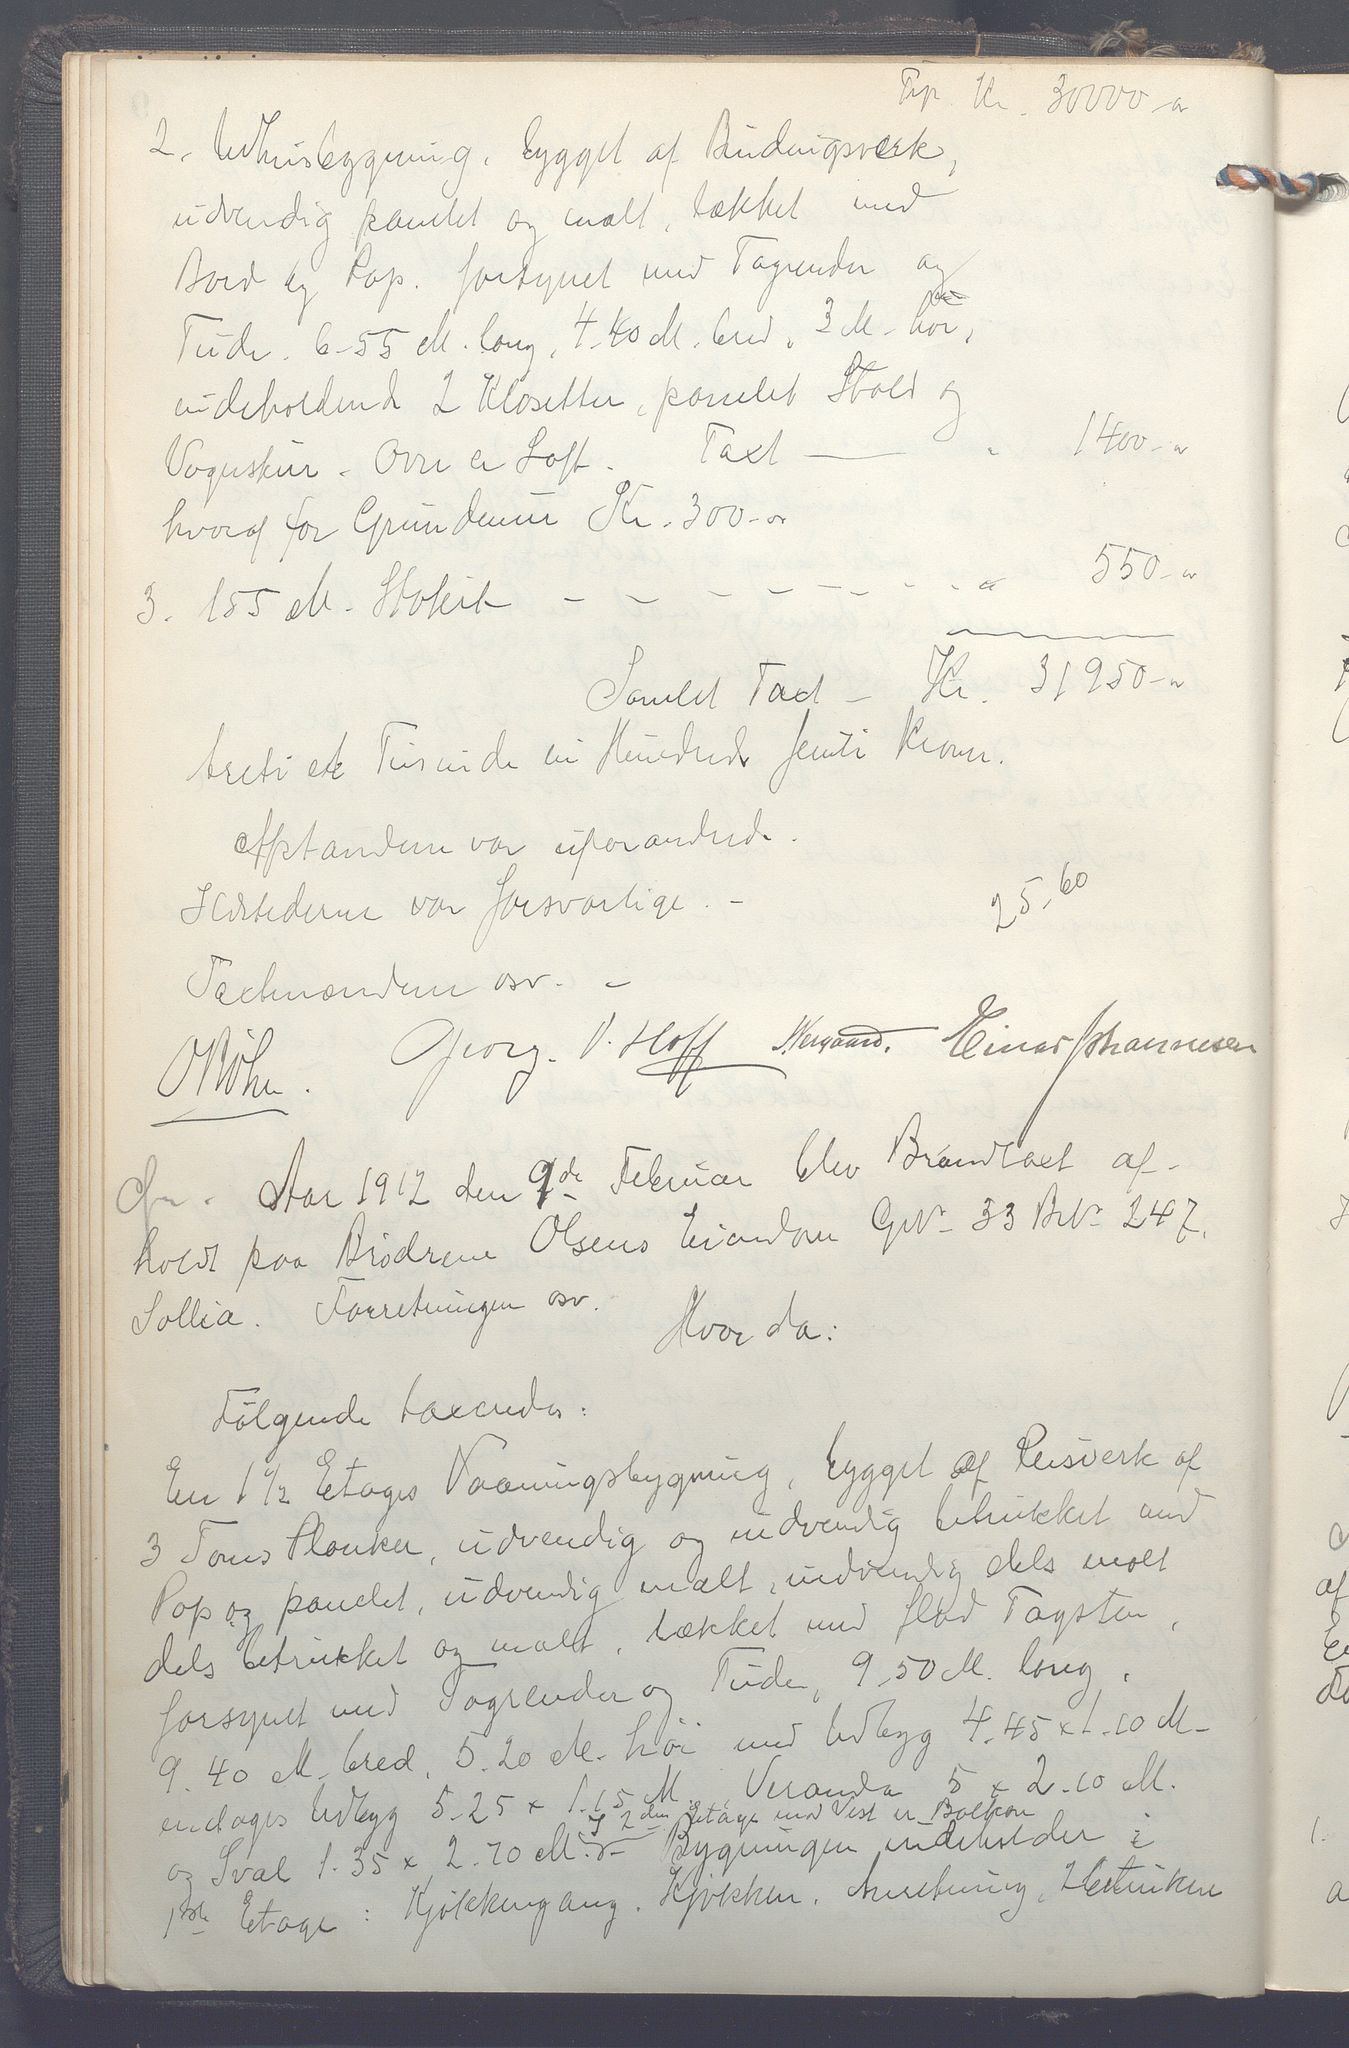 Trp. Kr. 30000-"
2. Udhusbygning, bygget af Bindingsverk,
udvendig panelet og malt, tækket med
Bord og Pap. forsynet med Tagrender og
Tude. 6-55 M. lang, 4.40 M. bred, 3 M. høi,
indeholdende 2 Klosetter, panelet Stald og
Vognskur. Over er Loft. Taxt — " 1400-"
hvoraf for Grundmur Kr. 300-"
3. 155 M. Stakit - - - - - - - " 550-"
Samlet Taxt - Kr. 31950-"
treti et Tusinde ni Hundrede femti Kroner.
Afstandene var uforandrede.
Ildstederne var forsvarlige. - 25-60
Taxtmændene osv. -
O Bøhn. Georg. V. Hoff Nergaard. Einar Johannesen
Aar 1912 den 9de Februar blev Brandtaxt af-
holdt paa Brødrene Olsens Eiendom GNr. 33 BNr. 247.
Sollia. Forretningen osv.
Hvor da:
Følgende taxeredes:
En 1 1/2 Etages Vaaningsbygning, bygget af Reisverk af
3 Toms Planker, udvendig og indvendig betrukket med
Pap og panelet, udvendig malt, indvendig dels malt
dels betrukket og malt, tækket med flad Tagsten,
forsynet med Tagrender og Tude, 9.50 M. lang,
9.40 M. bred, 5.20 M. høi med Udbyg 4.45 x 1.10 M.
endages Udbyg 5.25 x 1.15 M. Veranda 5 x 2.10 M.
I 2den Etage mod Vest er Balkon
og Sval 1.35 x 2.70 M. Bygningen indeholder i
1ste Etage: Kjøkkengang, Kjøkken, Anretning, 2 betrukne